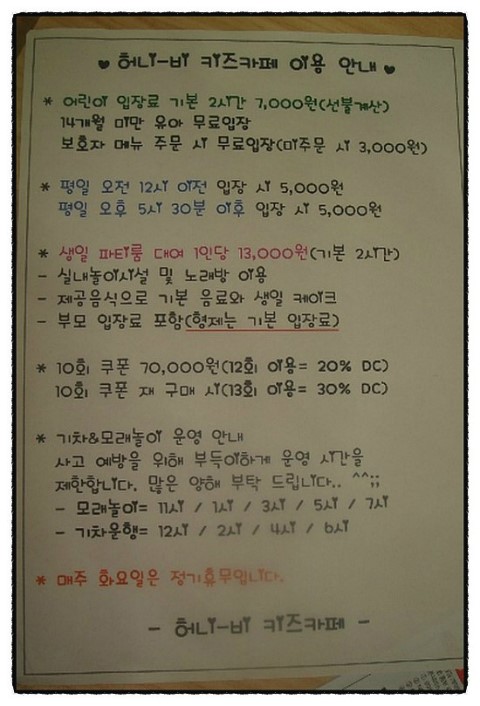 ♥ 허니-비 키즈카페 이용 안내 ♥
* 어린이 입장료 기본 2시간 7,000원(선불계산)
14개월 미만 유아 무료입장
보호자 메뉴 주문 시 무료입장(미주문 시 3,000원)
* 평일 오전 12시 이전 입장 시 5,000원
평일 오후 5시 30분 이후 입장 시 5,000원
* 생일 파티룸 대여 1인당 13,000원(기본 2시간)
- 실내놀이시설 및 노래방 이용
- 제공음식으로 기본 음료와 생일 케이크
- 부모 입장료 포함(형제는 기본 입장료)
* 10회 쿠폰 70,000원(12회 이용= 20% DC)
10회 쿠폰 재 구매 시(13회 이용= 30% DC)
* 기차&모래놀이 운영 안내
사고 예방을 위해 부득이하게 운영 시간을
제한합니다. 많은 양해 부탁 드립니다.. ^^;;
- 모래놀이= 11시 / 1시 / 3시 / 5시 / 7시
- 기차운행= 12시 / 2시 / 4시 / 6시
* 매주 화요일은 정기휴무입니다.
- 허니-비 키즈카페 -